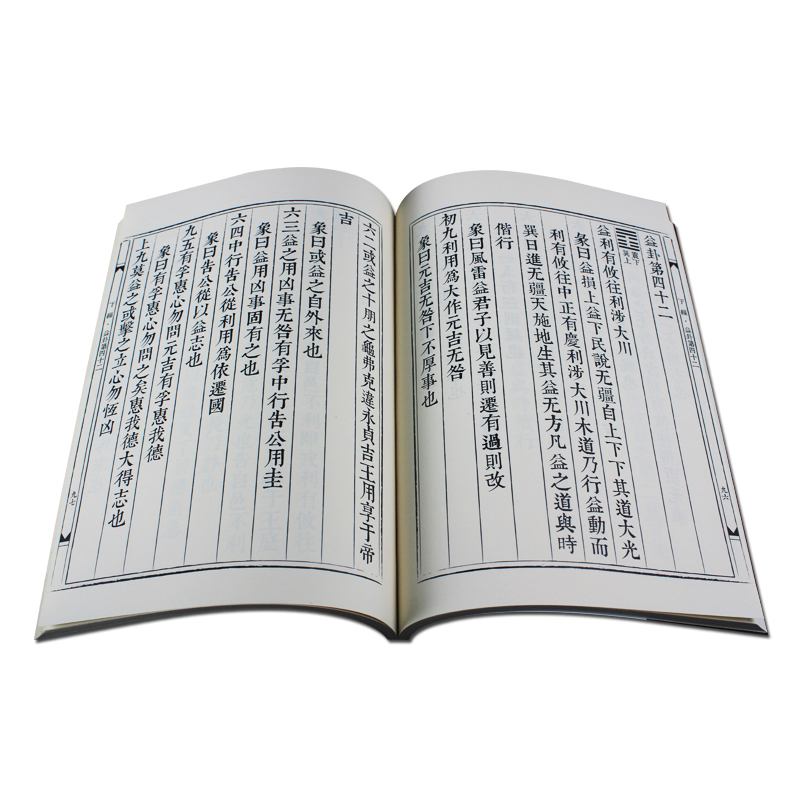 益卦第四十二
震下
巽上
益利有攸往利涉大川
彖曰益損上益下民說无疆自上下下其道大光
利有攸往中正有慶利涉大川木道乃行益動而
巽日進无疆天施地生其益无方凡益之道與時
偕行
象曰風雷益君子以見善則遷有過則改
初九利用為大作元吉无咎
象曰元吉无咎下不厚事也
下編 益卦第四十二
九六
六二或益之十朋之龜弗克違永貞吉王用享于帝
吉
象曰或益之自外來也
六三益之用凶事无咎有孚中行告公用圭
象曰益用凶事固有之也
六四中行告公從利用為依遷國
象曰告公從以益志也
九五有孚惠心勿問元吉有孚惠我德
象曰有孚惠心勿問之矣惠我德大得志也
上九莫益之或擊之立心勿恆凶
下編 益卦第四十二
九七